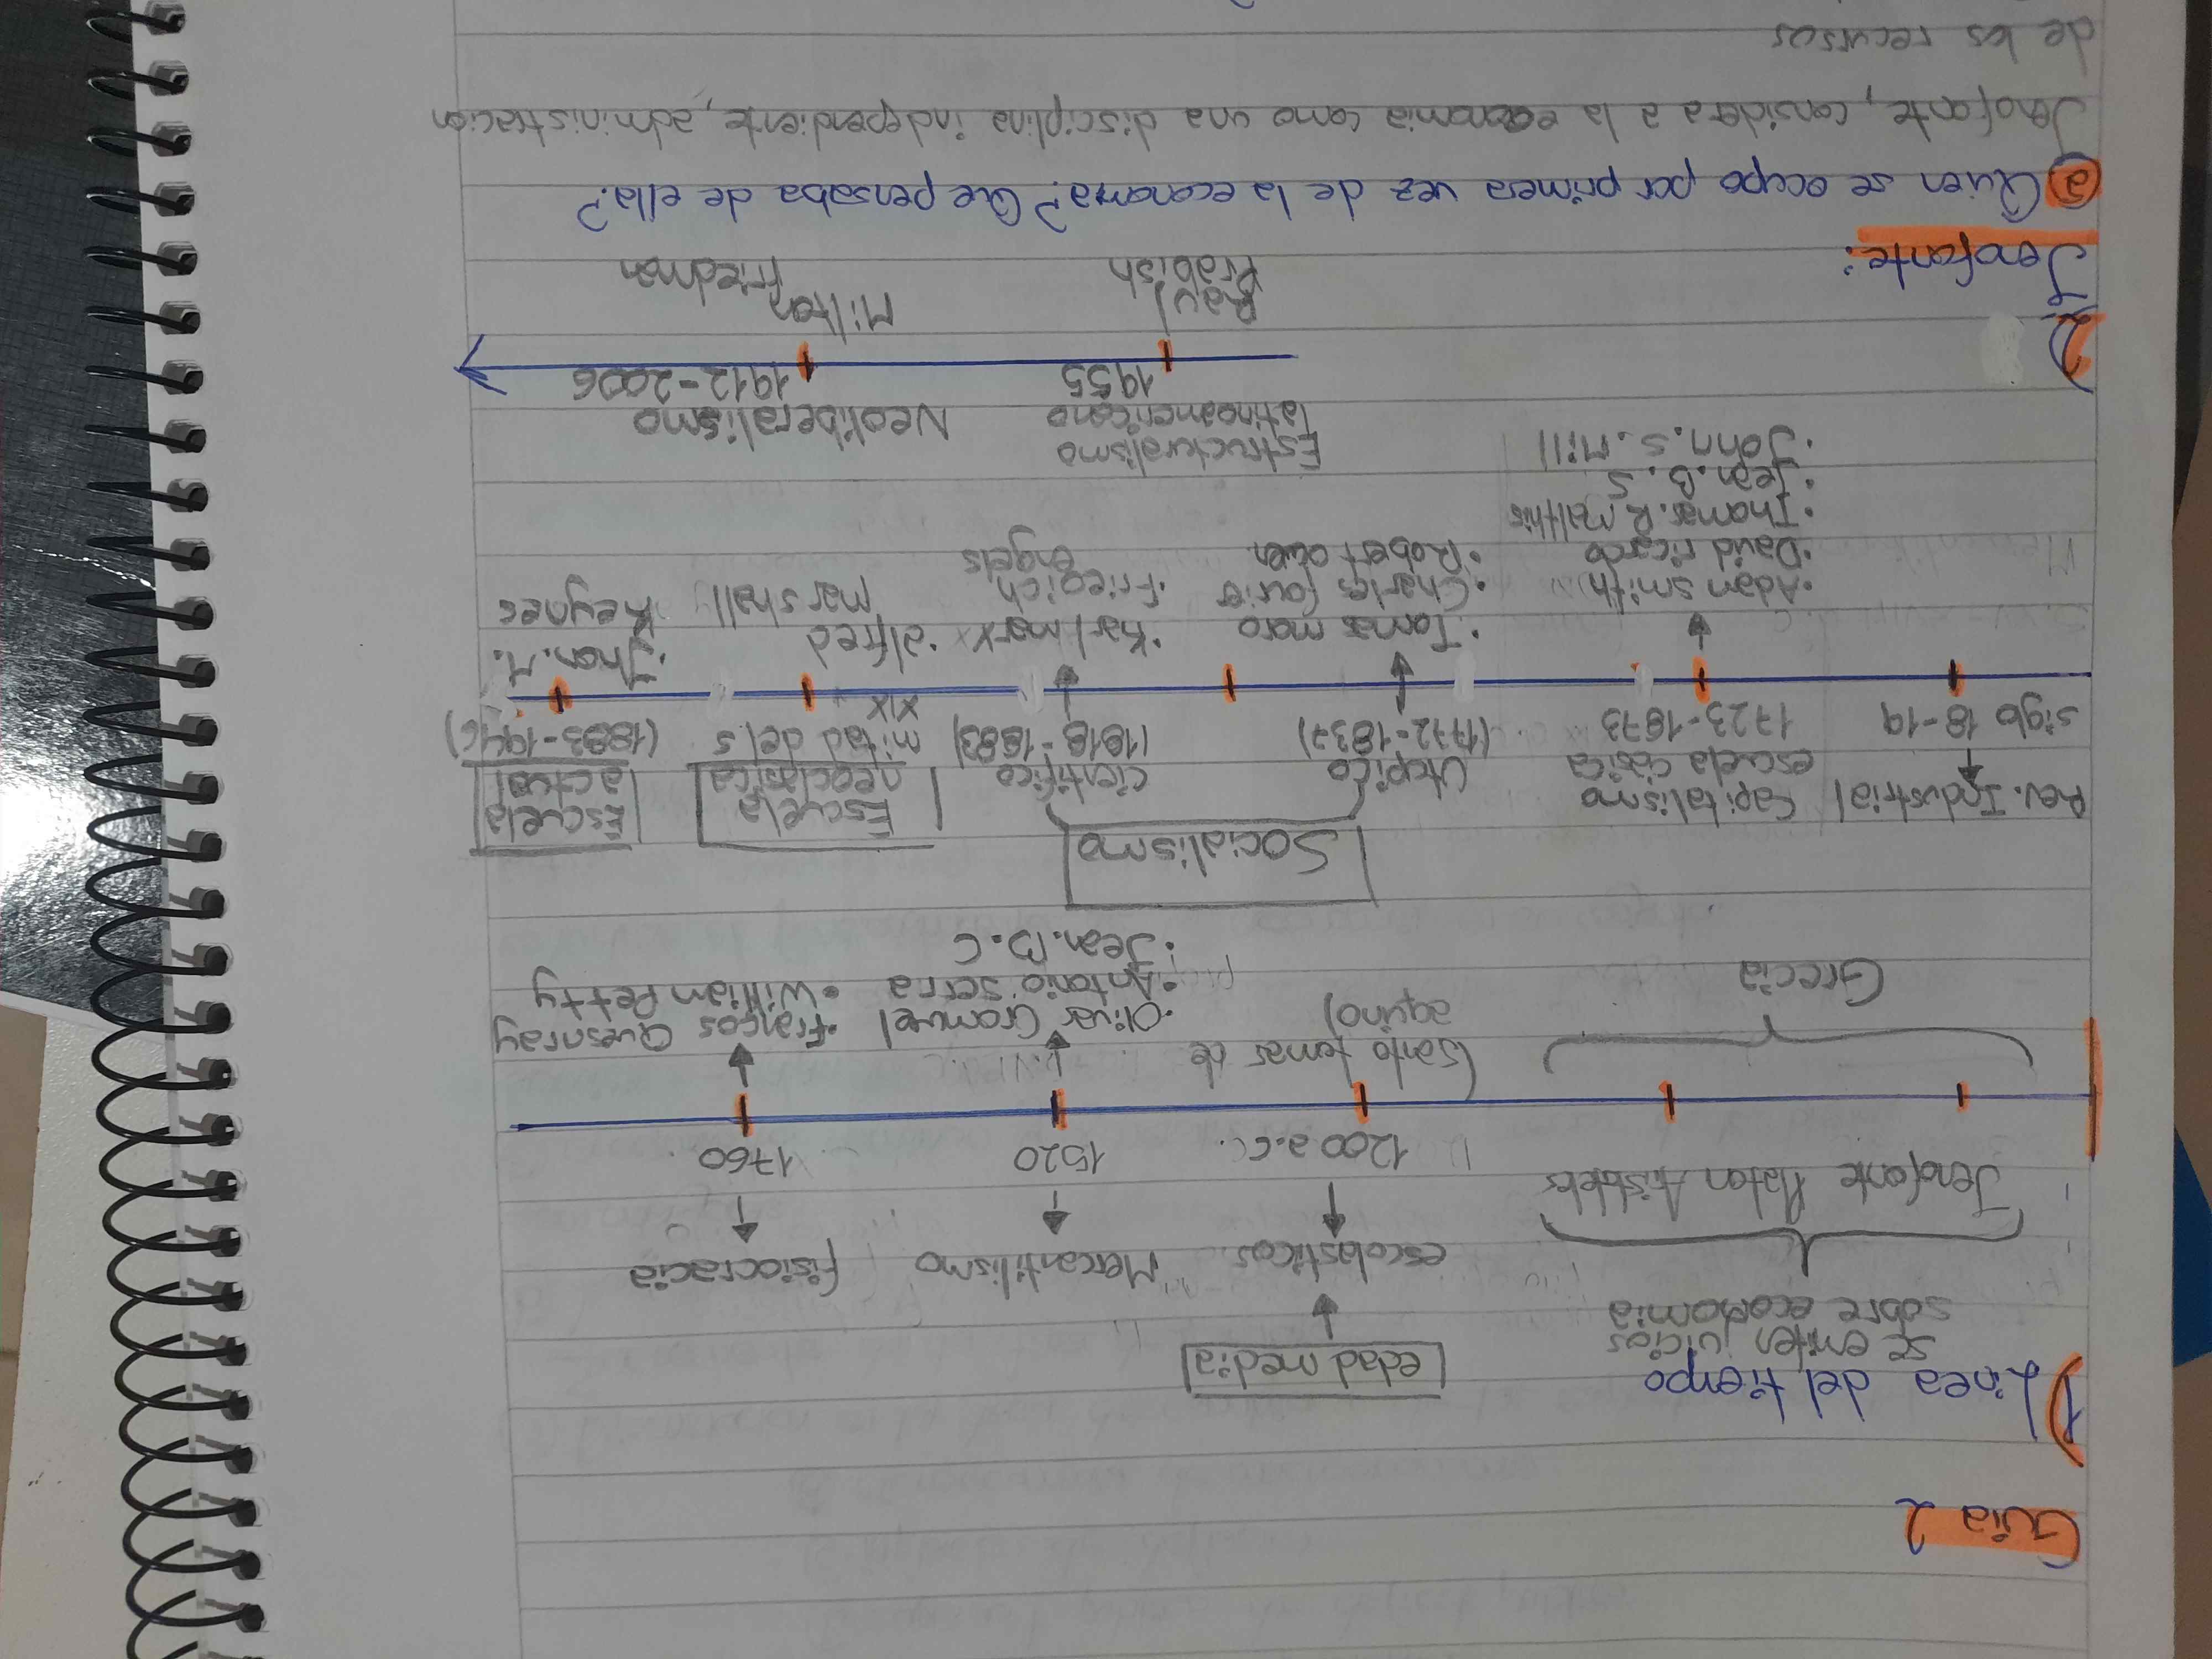 Guia 2
1) Linea del tiempo
se emiten juicios
sobre economia
edad media
escolasticos Mercantilismo fisiocracia
Jenofonte Platon Aristteles
1200 a.C. 1520 1760
Grecia
(santo tomas de
aquino)
·Oliver Cromwel
·Antonio serra
·Jean.B.C
·François Quesnay
·William Petty
Socialismo
Rev. Industrial
Capitalismo
escuela clasica
Utopico
cientifico
Escuela
neoclasica
Escuela
actual
siglo 18-19
1723-1873
(1772-1837)
(1818-1883)
mitad del s
XIX
(1883-1946)
·Adam smith
·David ricardo
·Thomas.R malthus
·Jean.B.S
·John.S.Mill
·Tomas moro
·Charles fourier
·Robert owen
·Karl marx
·Friedich
engels
·alfred
marshall
·Jhon.M.
Keynes
Estructuralismo
latinoamericano
1955
Neoliberalismo
1912-2006
Raul
Prabish
Milton
Friedman
2)
Jenofonte:
a) Quien se ocupo por primera vez de la economia? Que pensaba de ella?
Jenofonte, considera a la economia como una disciplina independiente, administracion
de los recursos